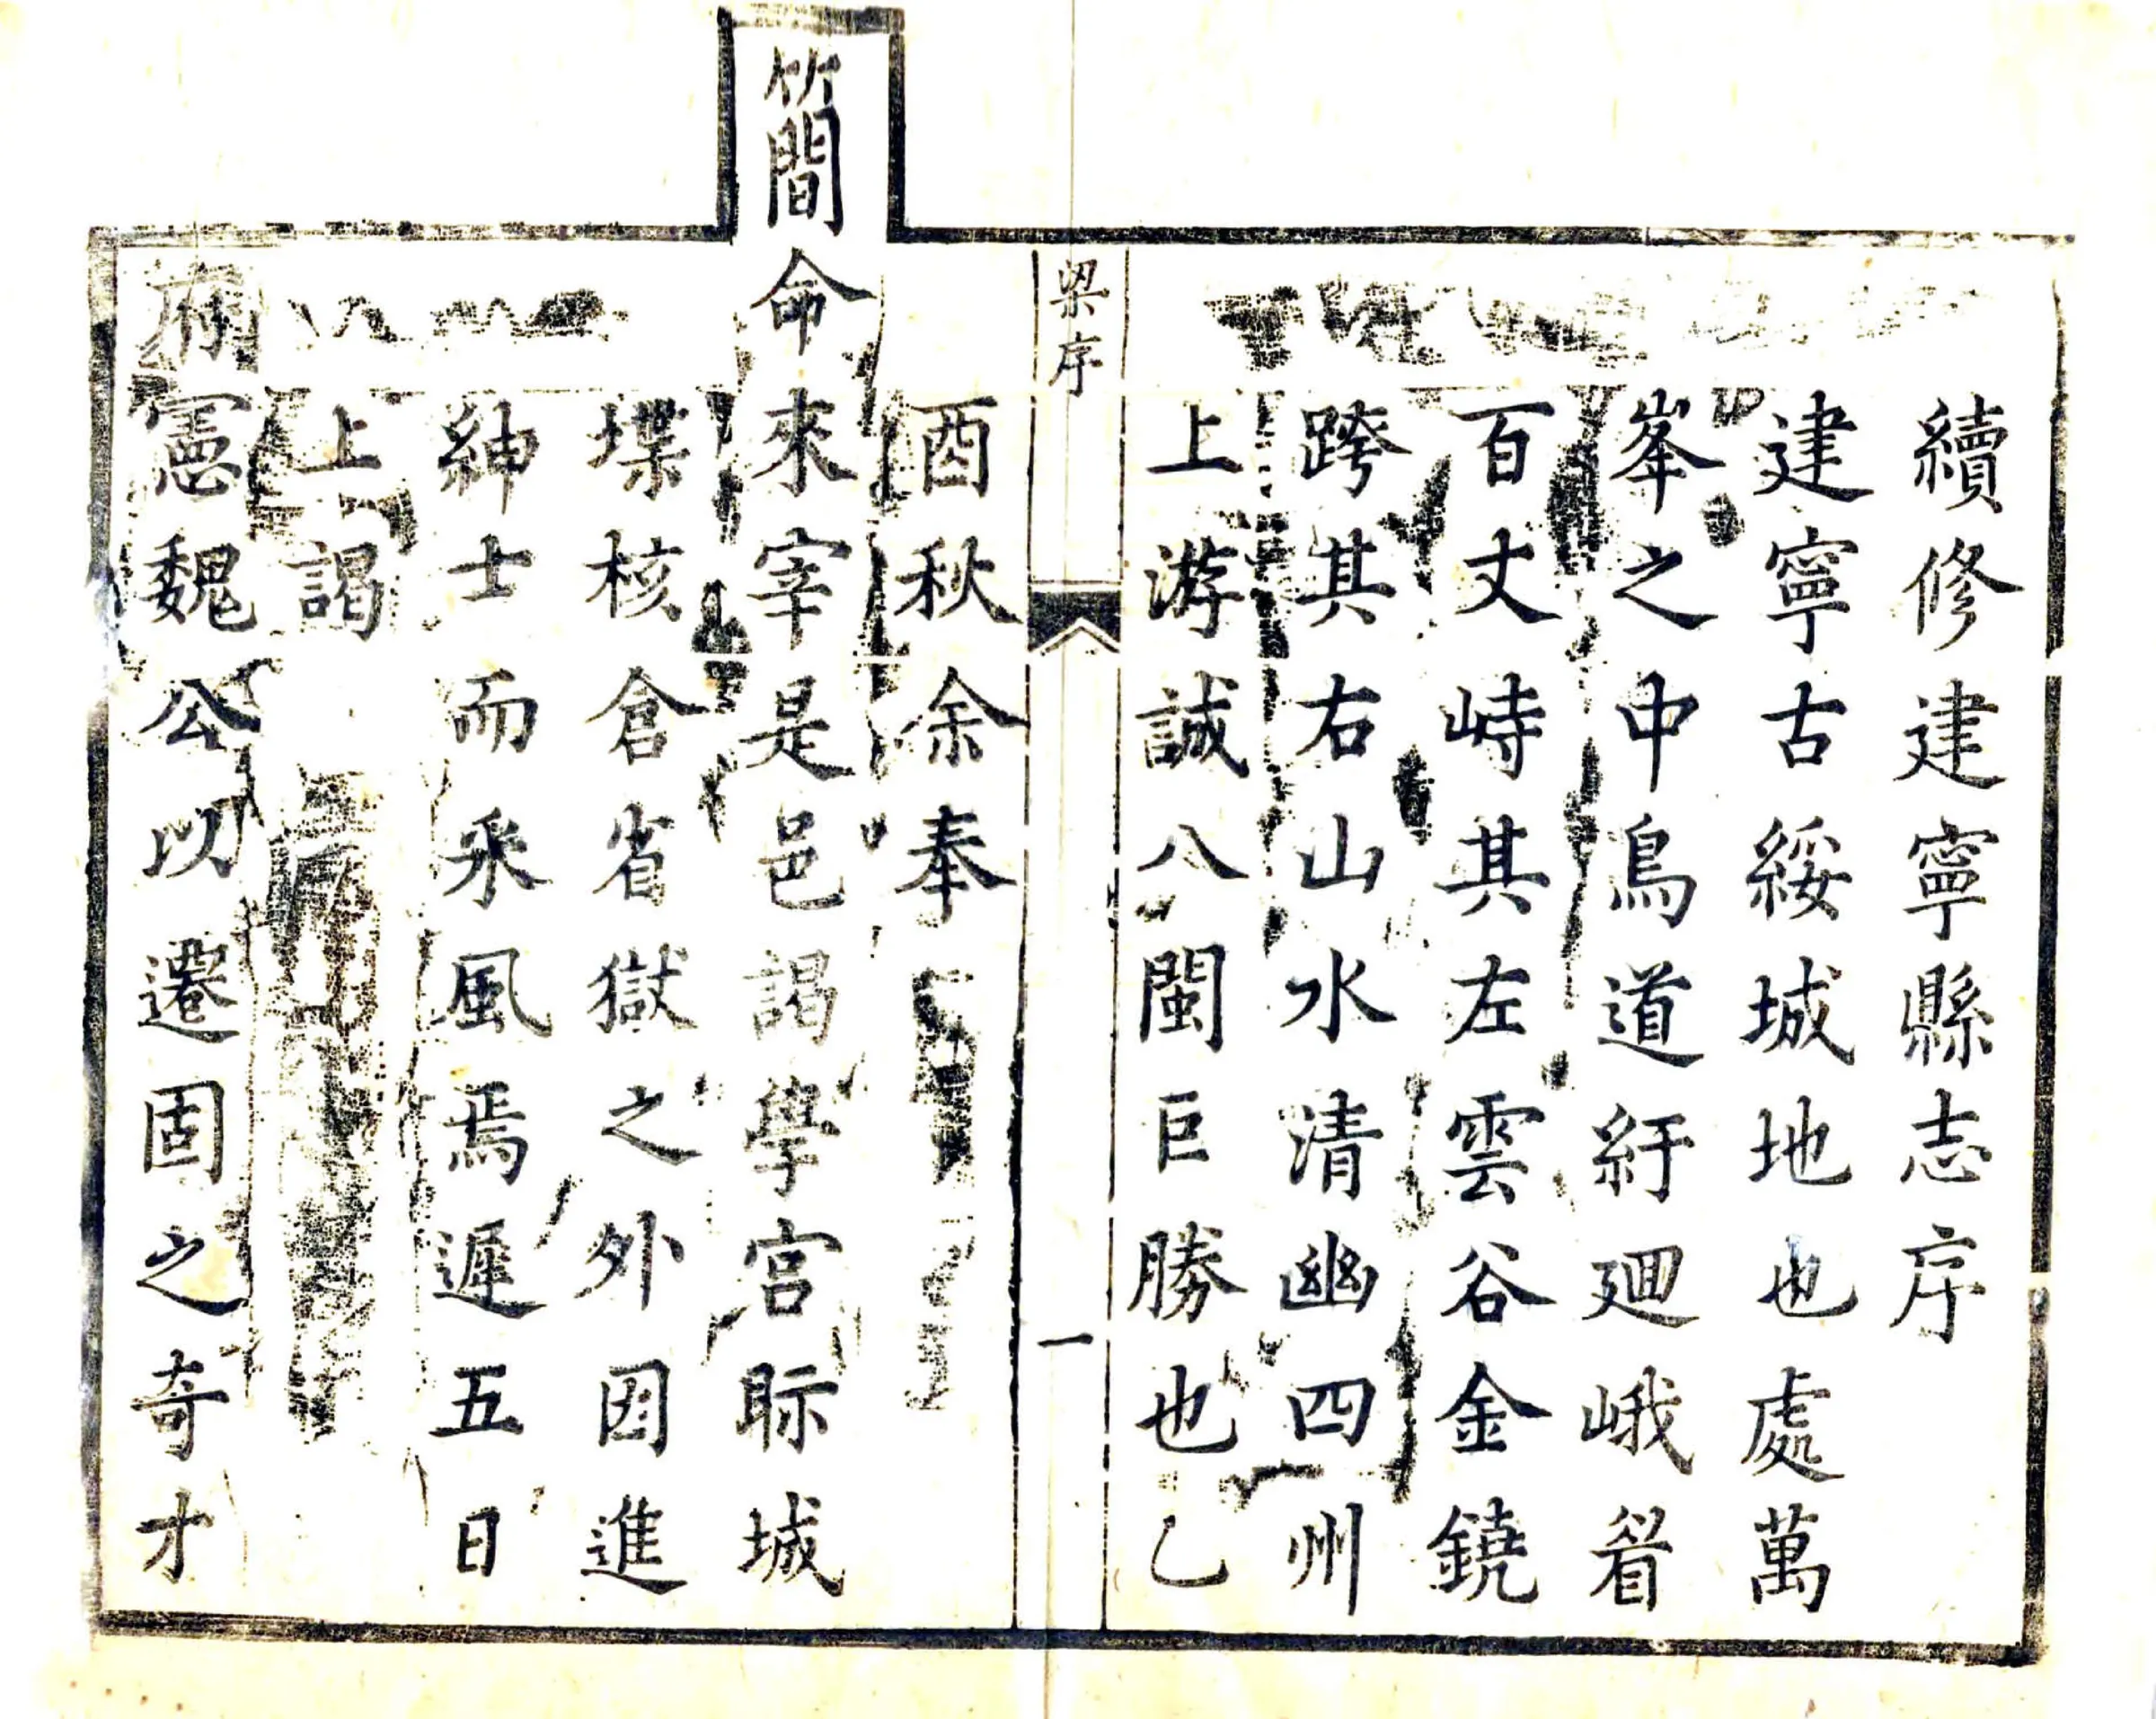 續修建寧縣志序
建寧古綏城地也處萬
峯之中鳥道紆廻峨眉
百丈峙其左雲谷金鐃
跨其右山水清幽四州
上游誠八閩巨勝也乙
梁序
一
酉秋余奉
簡命來宰是邑謁學宮眎城
堞核倉省獄之外因進
紳士而采風焉遲五日
上謁
府憲魏公以遷固之奇才